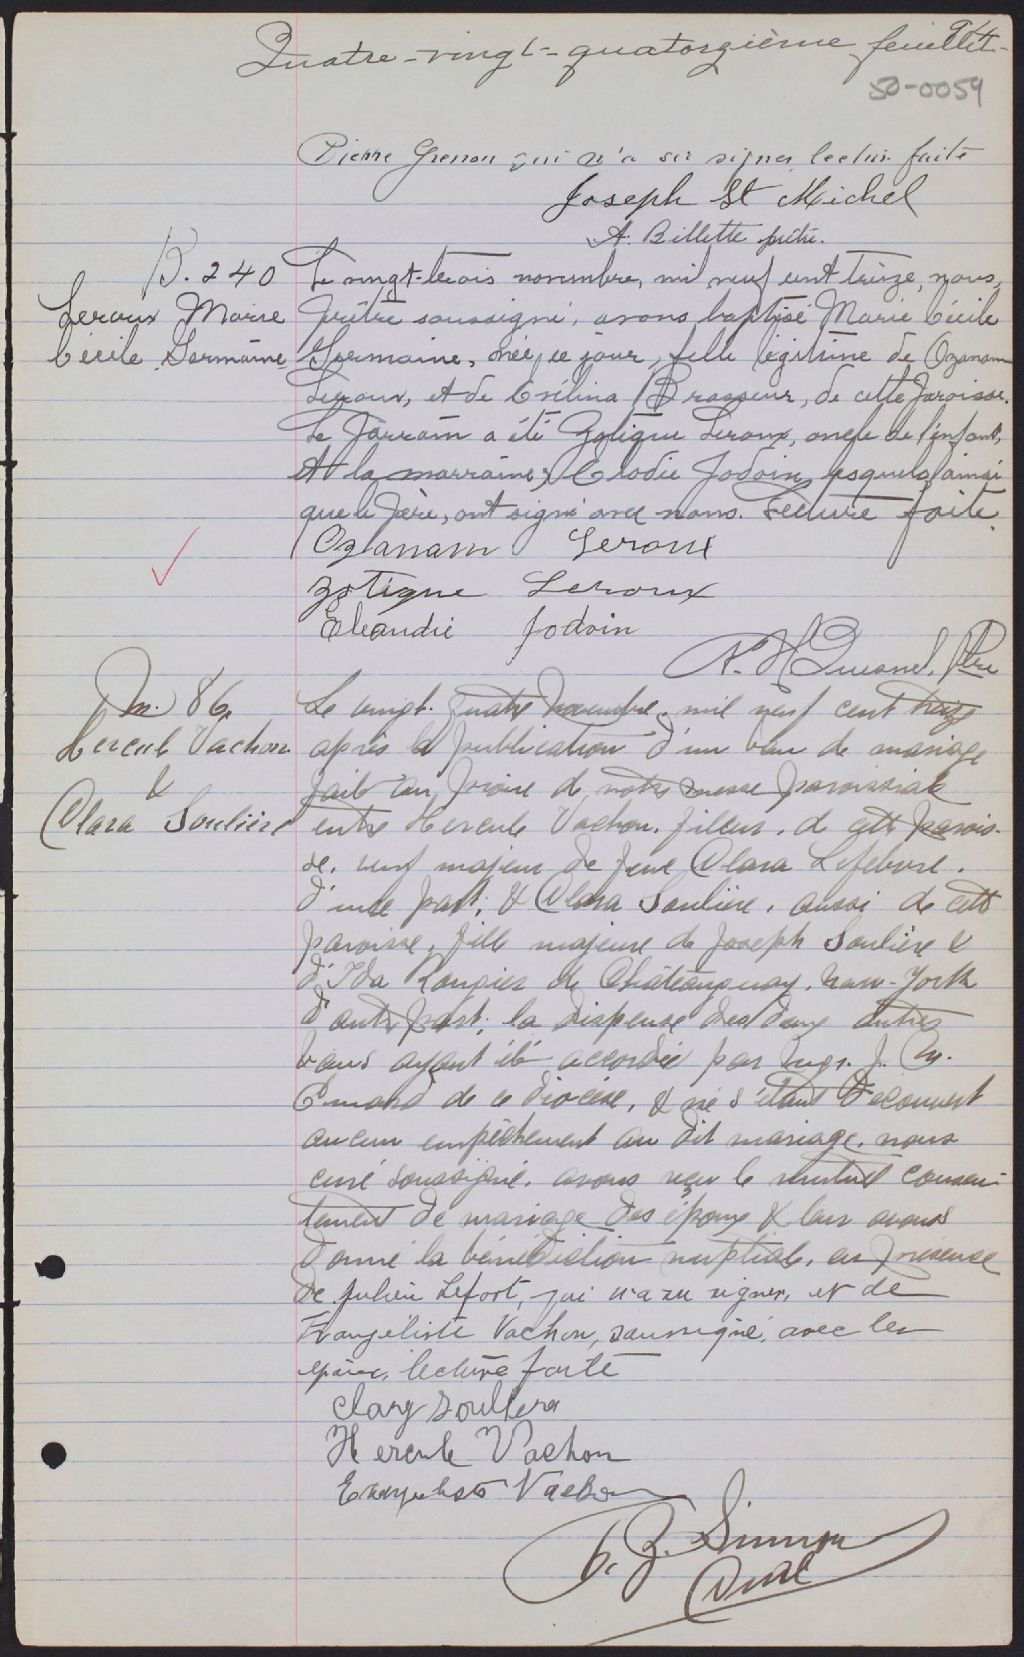 94
Quatre-vingt-quatorzième feuillet
50-0059
Pierre Grenon qui n'a su signer lecture faite
Joseph St Michel
A. Billette prêtre.
B. 240
Leroux Marie
Cécile Germaine
Le vingt-trois novembre, mil neuf cent treize, nous,
prêtre soussigné, avons baptisé Marie Cécile
Germaine, née ce jour, fille légitime de Ozanam
Leroux, et de Evélina Brasseur, de cette paroisse.
Le parrain a été Zotique Leroux, oncle de l'enfant,
et la marraine, Elodie Jodoin, lesquels, ainsi
que le père, ont signé avec nous. Lecture faite.
Ozanam Leroux
Zotique Leroux
Jodoin
Ptre
M. 86
Hercule Vachon
&
Clara Soulière
Le vingt-quatre novembre, mil neuf cent treize
après la publication d'un ban de mariage
fait au prône de notre messe paroissiale
entre Hercule Vachon, fileur, de cette parois-
se, veuf majeur de feue Clara Lefebvre,
d'une part, & Clara Soulière, aussi de cette
paroisse, fille majeure de Joseph Soulière &
d'Ida de Châteauguay, New-York
d'autre part; la dispense des deux autres
bans ayant été accordée par Mgr. J. M.
Emard de ce diocèse, & ne s'étant découvert
aucun empêchement au dit mariage, nous
curé soussigné, avons reçu le mutuel consen-
tement de mariage des époux & leur avons
donné la bénédiction nuptiale, en présence
de Julien Lefort, qui n'a su signer, et de
Evangéliste Vachon, soussigné, avec les
époux, lecture faite
Clara Souliere
Hercule Vachon
Evangeliste Vachon
Curé